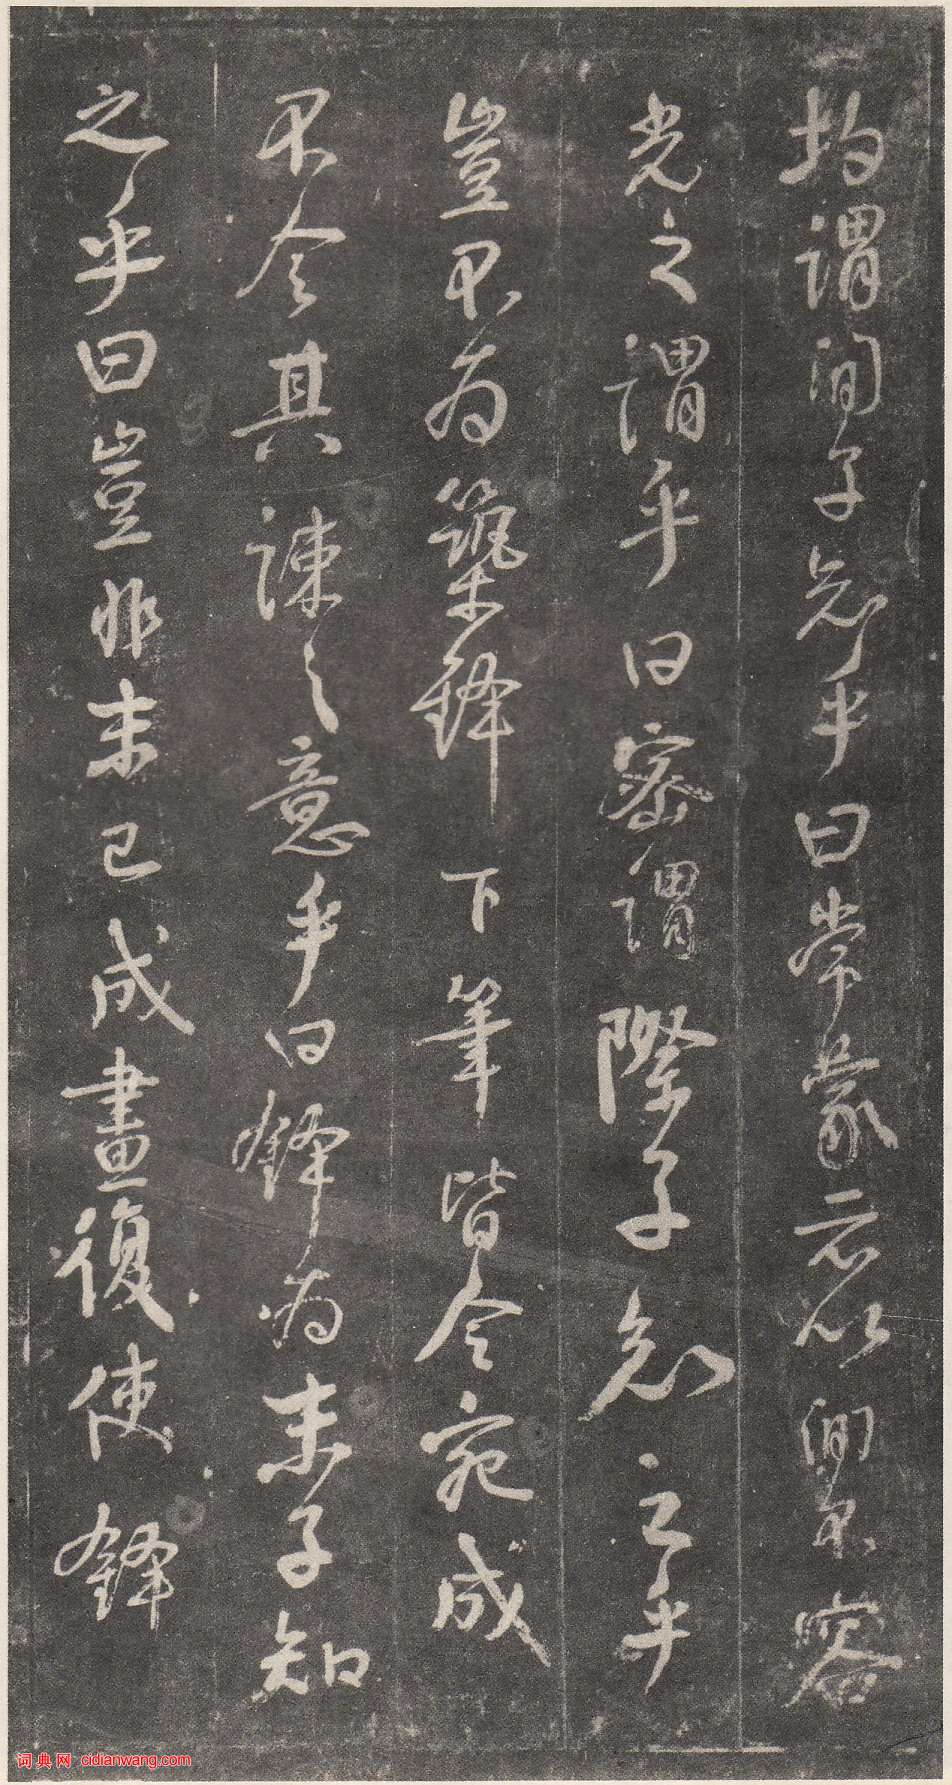 均謂間子知之乎曰常蒙示以間不容
光之謂乎曰密謂際子知之乎
豈不為築鋒下筆皆令宛成
不令其疎之意乎曰鋒為末子知
之乎曰豈非末已成畫復使鋒
词典网 cidianwang.com